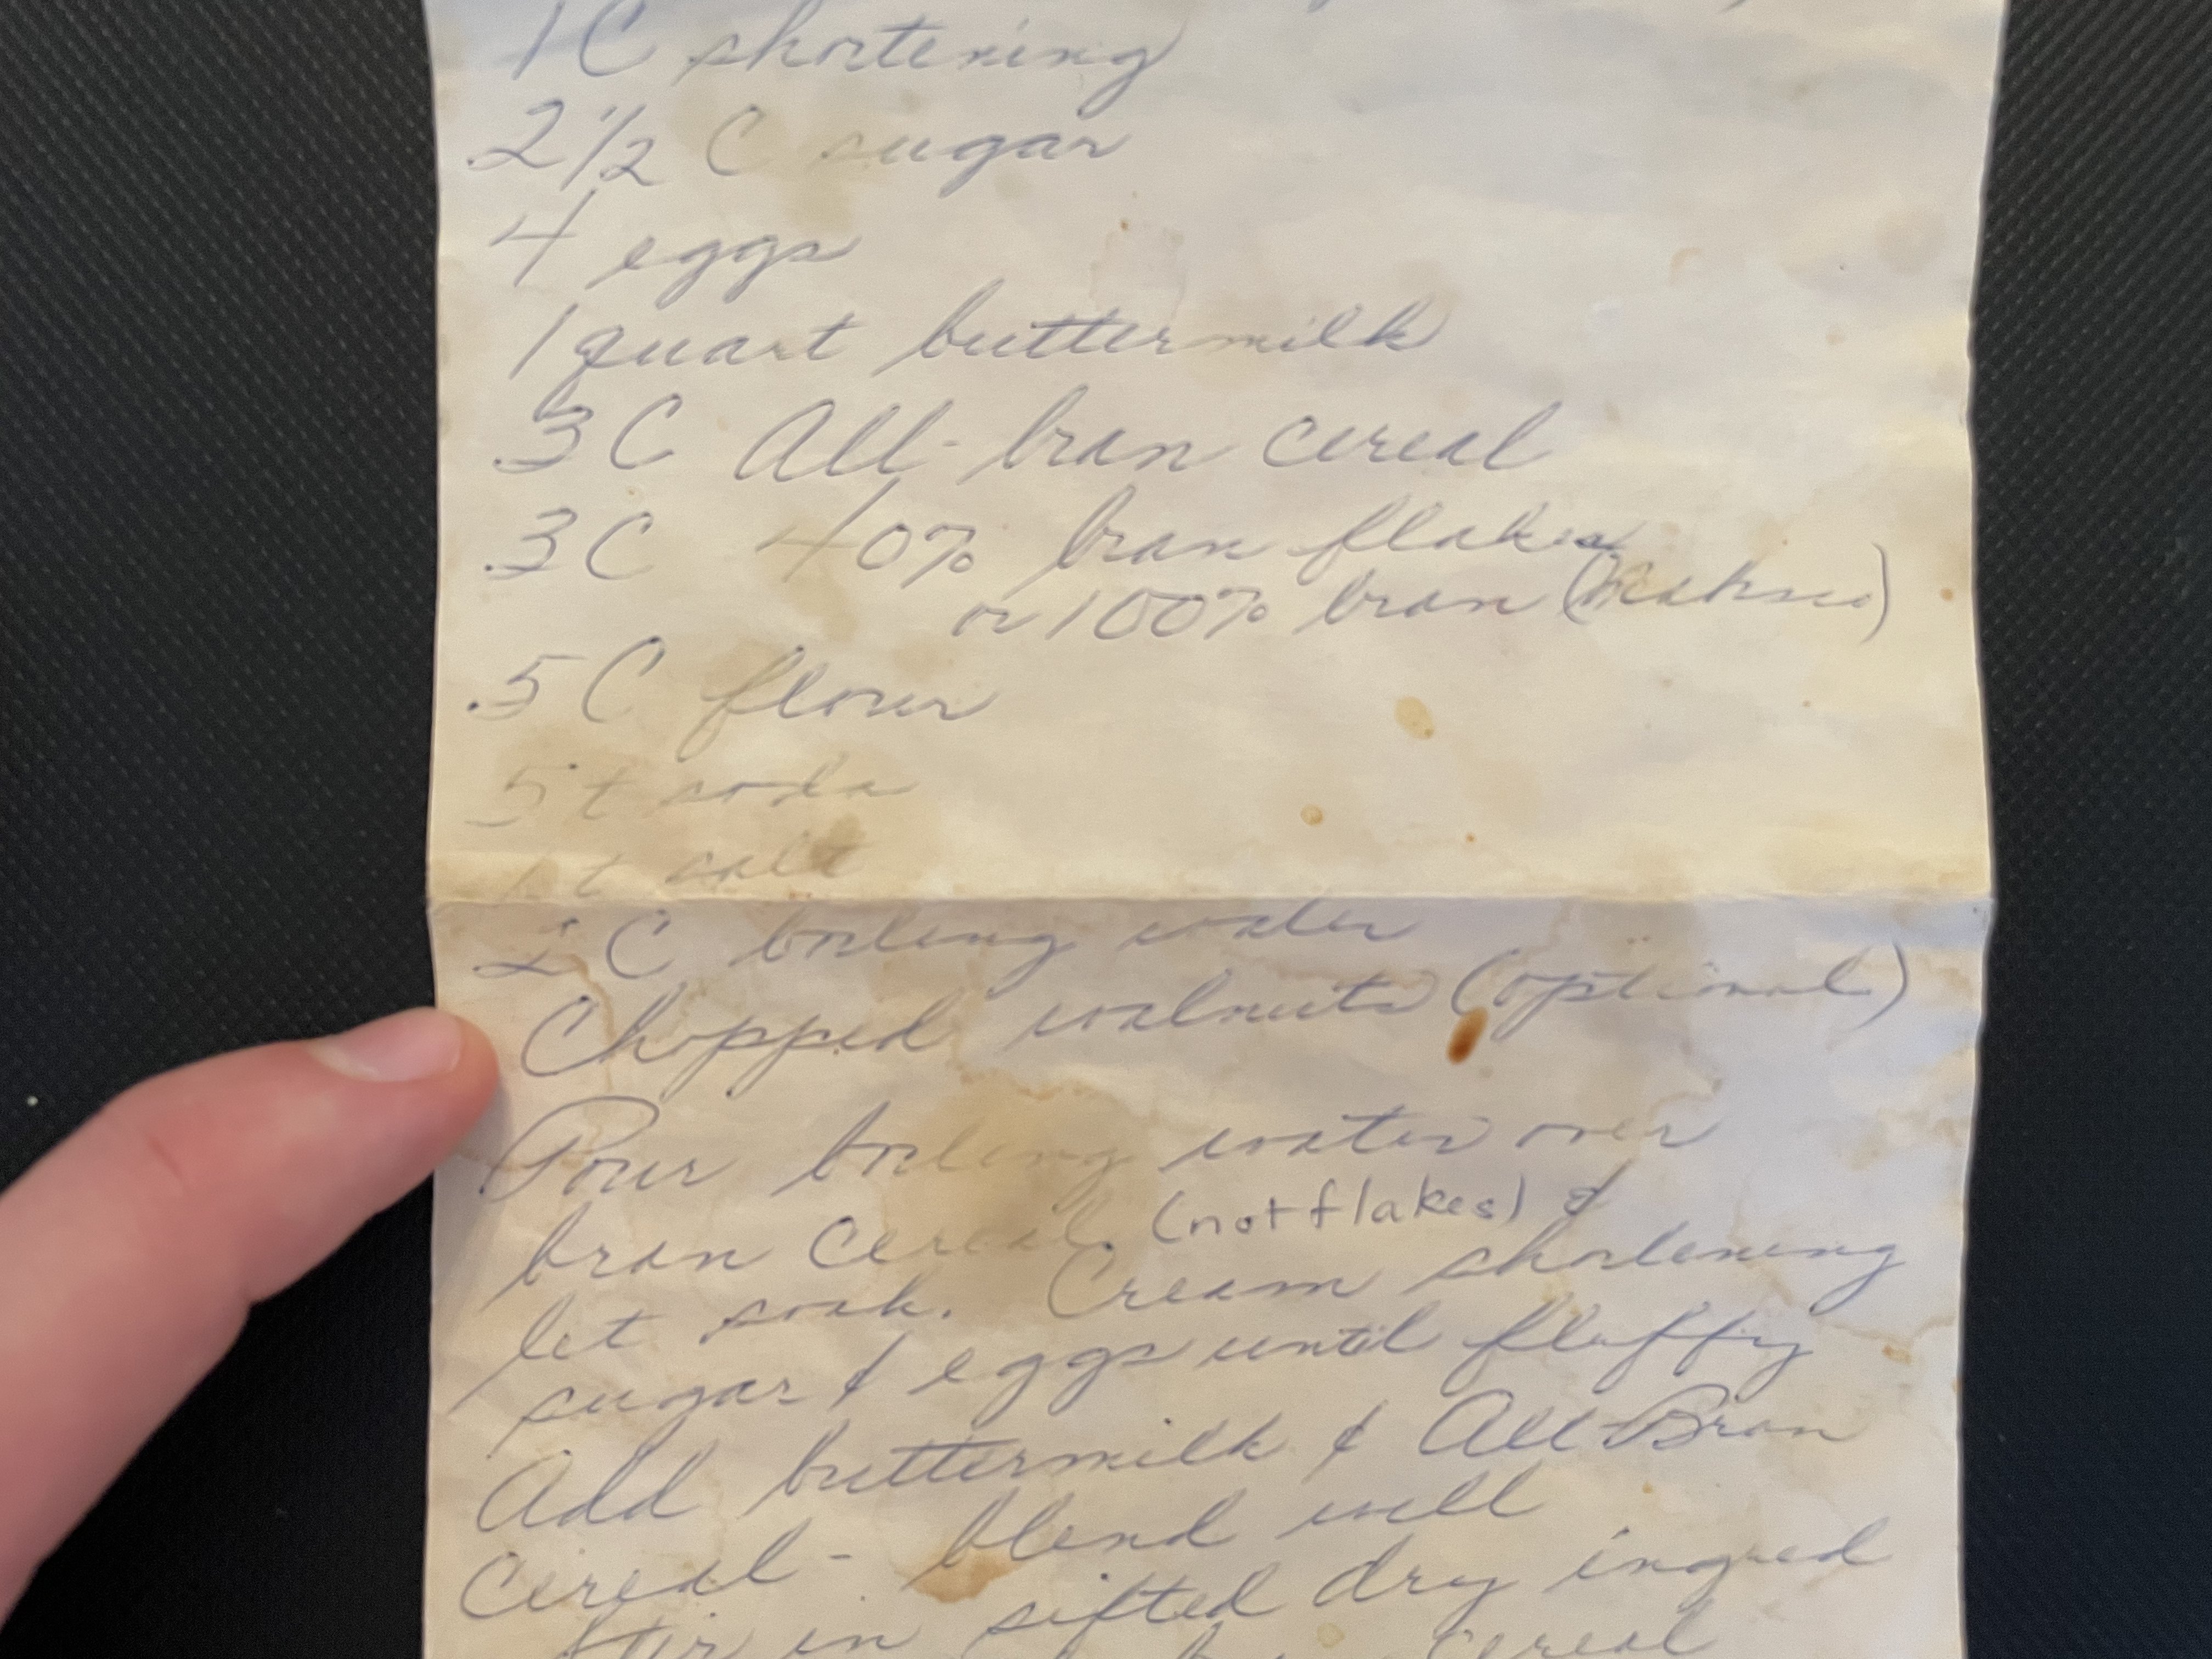 1 C shortening
2 1/2 C sugar
4 eggs
1 quart buttermilk
3 C All-bran cereal
3 C 40% bran flakes
or 100% bran (Nabisco)
5 C flour
5 t soda
1 t salt
2 C boiling water
Chopped walnuts (optional)
Pour boiling water over
bran cereal (not flakes) &
let soak. Cream shortening
sugar & eggs until fluffy
Add buttermilk & All-Bran
Cereal - blend well
Stir in sifted dry ingred
cereal